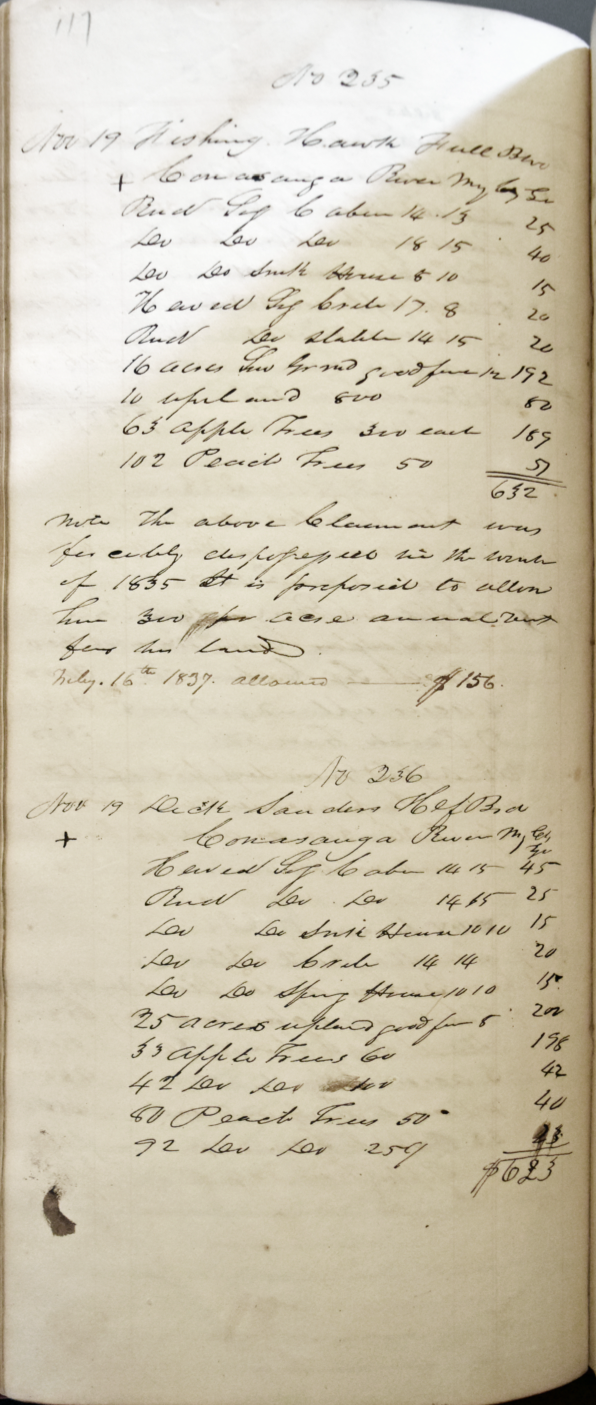 117
No 235
Nov 19 Fishing Hawk Full Blood
+ Conasauga River My Cty Ga
Rnd Log Caben 14 13 25
Do Do Do 18 15 40
Do Do Smk House 8 10 15
Hewed Log Crib 17. 8 20
Rnd Do Stable 14 15 20
16 acres Low Grnd good fence 12 192
10 upland 800 80
63 Apple Trees 300 each 189
102 Peach Trees 50 51
632
Note the above Claiment was
forcibly dispossessed in the
of 1835 It is proposed to allow
him 300 per acre annual Rent
for his land
Feby. 16th 1837. allowed $156.
No 236
Nov 19 Dick Sanders Half Brd
+ Conasauga River My Cty Ga
Hewed Log Caben 14 15 45
Rnd Do Do 14 15 25
Do Do Smk House 10 10 15
Do Do Crib 14 14 20
Do Do Spring House 10 10 15
25 acres upland good fen 8 200
33 Apple Trees 60 198
42 Do Do 100 42
80 Peach Trees 50 40
92 Do Do 25 23
$623